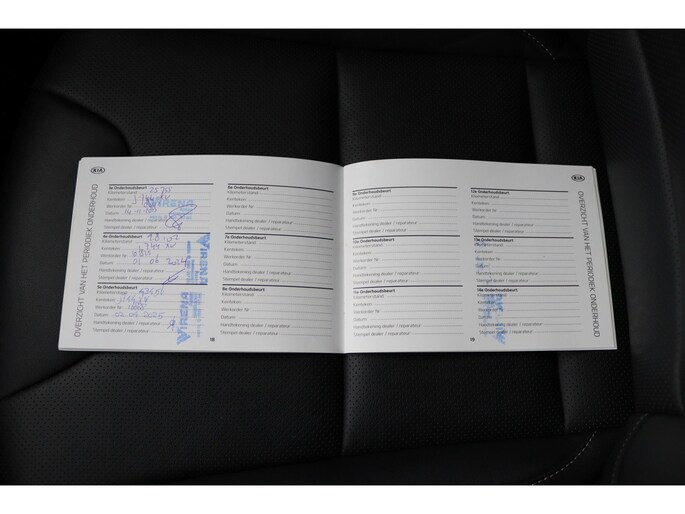 KIA
OVERZICHT VAN HET PERIODIEK ONDERHOUD
3e Onderhoudsbeurt
Kilometerstand
Kenteken
Werkorder Nr
Datum
Handtekening dealer / reparateur
Stempel dealer / reparateur
WIRENA
4e Onderhoudsbeurt
Kilometerstand
Kenteken
Werkorder Nr
Datum 01 04 2024
Handtekening dealer / reparateur
Stempel dealer / reparateur
WIRENA
5e Onderhoudsbeurt
Kilometerstand
Kenteken
Werkorder Nr
Datum 02 04 2025
Handtekening dealer / reparateur
Stempel dealer / reparateur
WIRENA
6e Onderhoudsbeurt
Kilometerstand
Kenteken
Werkorder Nr
Datum
Handtekening dealer / reparateur
Stempel dealer / reparateur
7e Onderhoudsbeurt
Kilometerstand
Kenteken
Werkorder Nr
Datum
Handtekening dealer / reparateur
Stempel dealer / reparateur
8e Onderhoudsbeurt
Kilometerstand
Kenteken
Werkorder Nr
Datum
Handtekening dealer / reparateur
Stempel dealer / reparateur
18
9e Onderhoudsbeurt
Kilometerstand
Kenteken
Werkorder Nr
Datum
Handtekening dealer / reparateur
Stempel dealer / reparateur
10e Onderhoudsbeurt
Kilometerstand
Kenteken
Werkorder Nr
Datum
Handtekening dealer / reparateur
Stempel dealer / reparateur
11e Onderhoudsbeurt
Kilometerstand
Kenteken
Werkorder Nr
Datum
Handtekening dealer / reparateur
Stempel dealer / reparateur
12e Onderhoudsbeurt
Kilometerstand
Kenteken
Werkorder Nr
Datum
Handtekening dealer / reparateur
Stempel dealer / reparateur
13e Onderhoudsbeurt
Kilometerstand
Kenteken
Werkorder Nr
Datum
Handtekening dealer / reparateur
Stempel dealer / reparateur
14e Onderhoudsbeurt
Kilometerstand
Kenteken
Werkorder Nr
Datum
Handtekening dealer / reparateur
Stempel dealer / reparateur
19
KIA
OVERZICHT VAN HET PERIODIEK ONDERHOUD